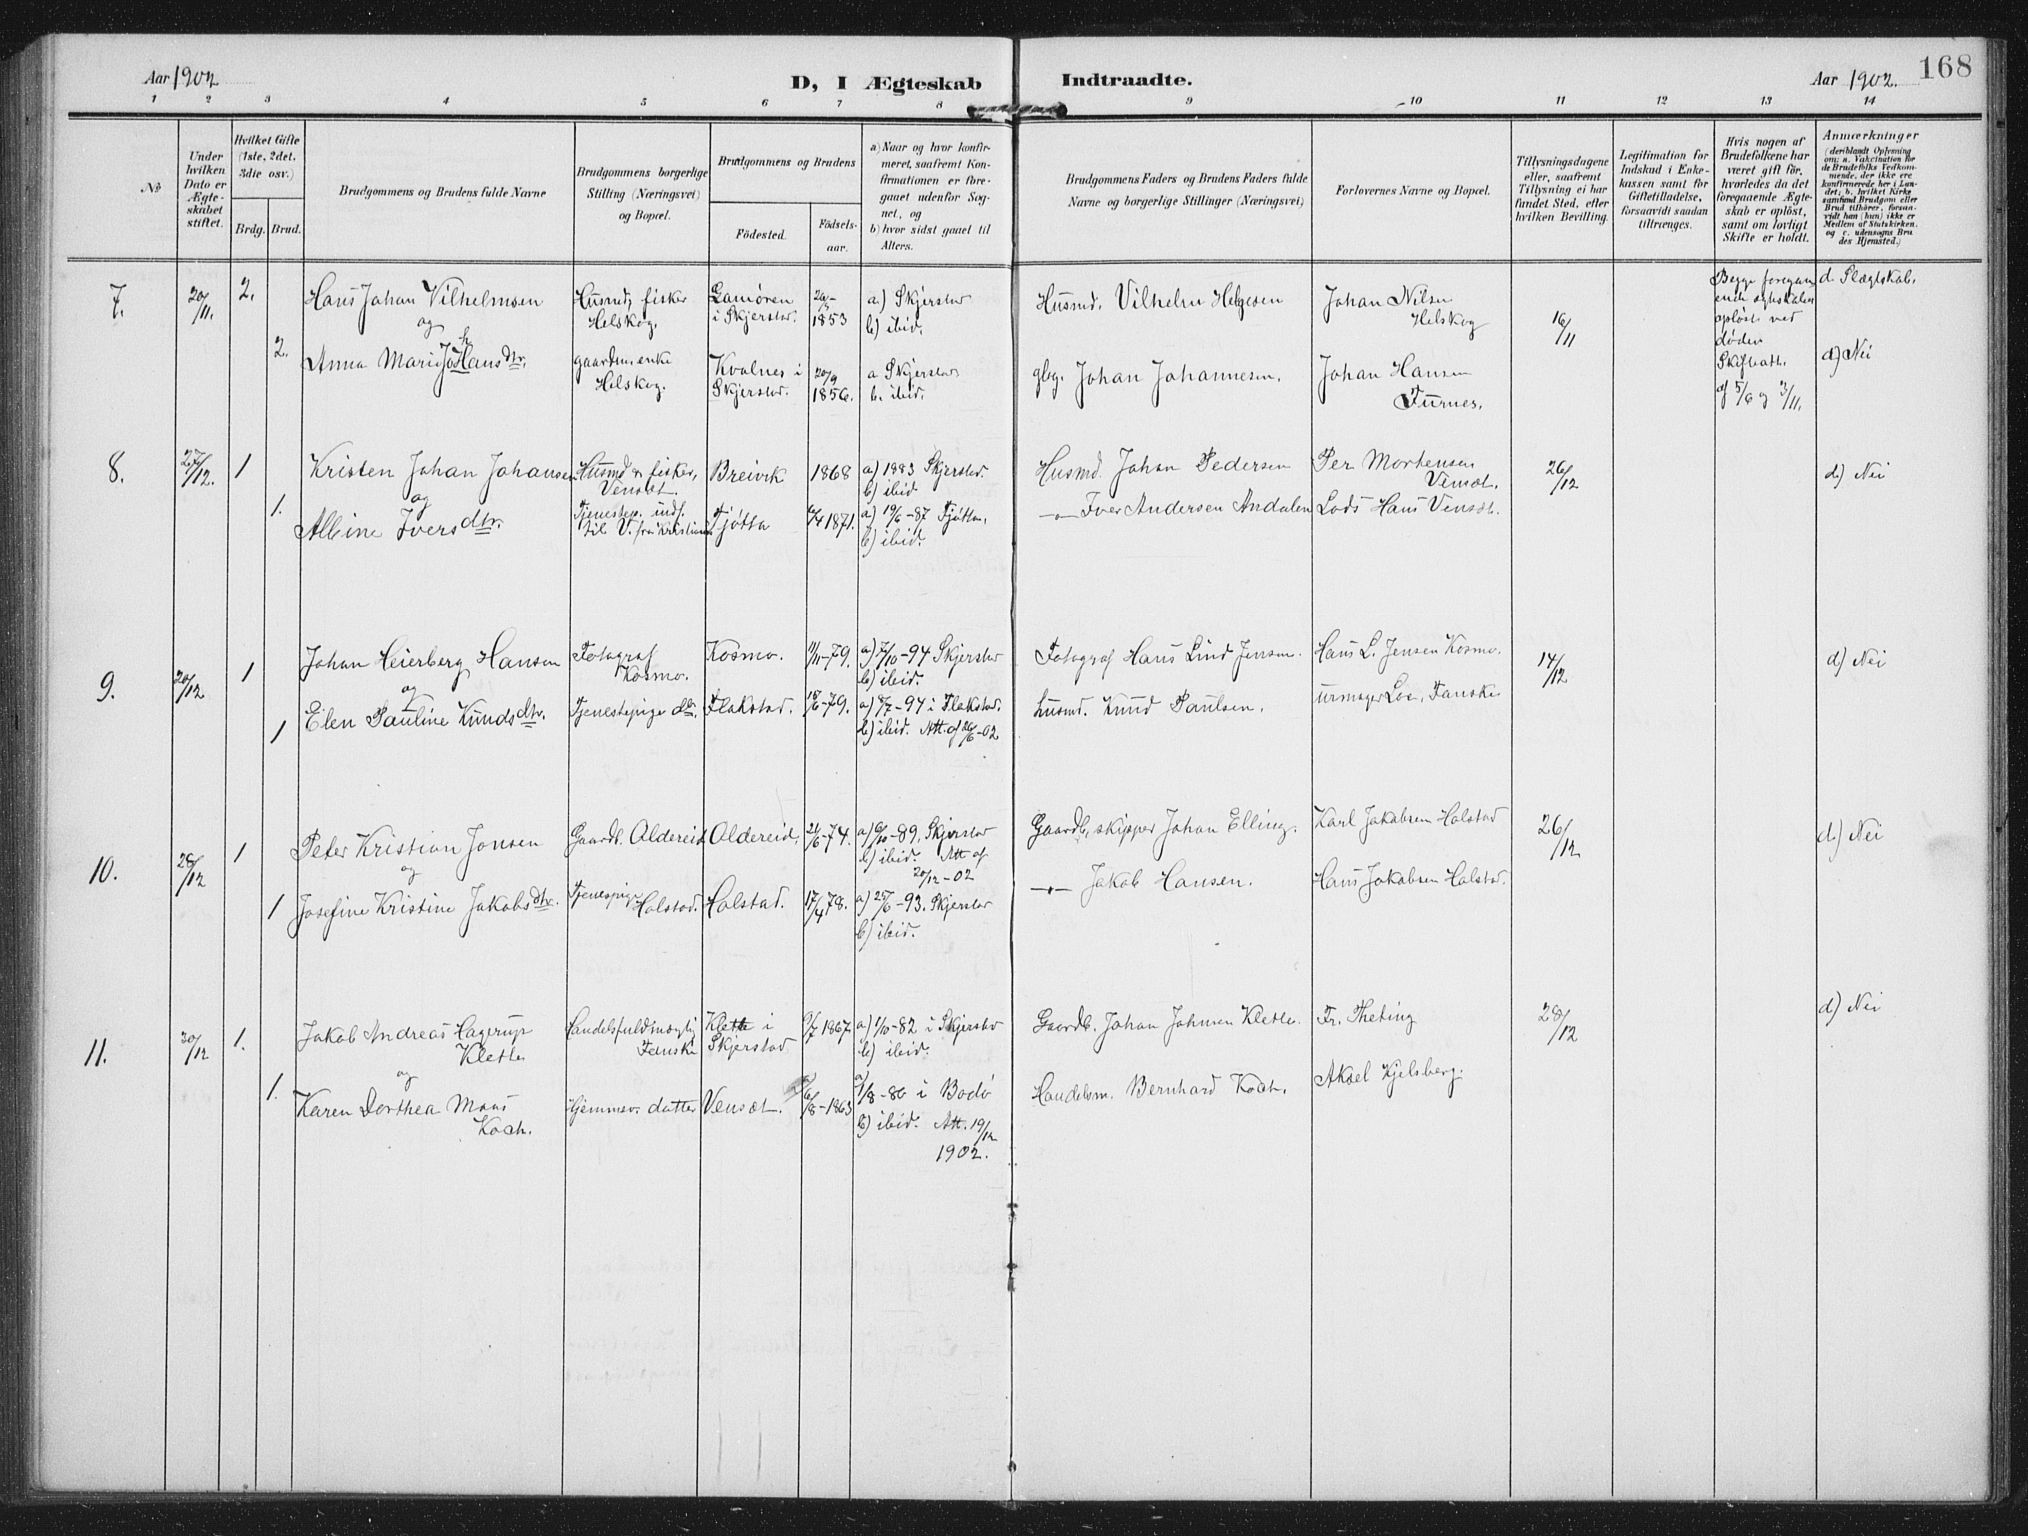 Aar 1902
D, I Ægteskab Indtraadte.
Aar 1902.
168
1 2 3 4 5 6 7 8 9 10 11 12 13 14
№
Under hvilken Dato er Ægteskabet stiftet.
Hvilket Gifte (1ste, 2det, 3die osv.)
Brdg. Brud.
Brudgommens og Brudens fulde Navne
Brudgommens borgerlige Stilling (Næringsvei) og Bopæl.
Brudgommens og Brudens
Fødested.
Fødselsaar.
a) Naar og hvor konfirmeret, saafremt Konfirmationen er foregaaet udenfor Sognet, og
b) hvor sidst gaaet til Alters.
Brudgommens Faders og Brudens Faders fulde Navne og borgerlige Stillinger (Næringsvei)
Forlovernes Navne og Bopæl.
Tillysningsdagene eller, saafremt Tillysning ei har fundet Sted, efter hvilken Bevilling.
Legitimation for Indskud i Enkekassen samt for Giftetilladelse, forsaavidt saadan tiltrænges.
Hvis nogen af Brudefolkene har været gift før, hvorledes da det foregaaende Ægteskab er opløst, samt om lovligt Skifte er holdt.
Anmærkninger
(deriblandt Oplysning om: a. Vakcination for de Brudefolks Vedkommende, der ikke ere konfirmerede her i Landet; b. hvilket Kirkesamfund Brudgom eller Brud tilhører, forsaavidt han (hun) ikke er Medlem af Statskirken, og c. udensogns Brudes Hjemsted.)
7. 20/11. 2. Hans Johan Vilhelmsen
og
Husmd, fisker Helskog.
Lamøren i Skjerstad.
1853
a.) Skjerstad
b) ibid.
Husmd. Vilhelm Helgesen
Johan Nilsen Helskog
16/11
Begge foregaaende egteskaber opløst ved døden
Skifteatt. af 5/6 og 3/11.
d. Slægtskab.
2. Anna Maria Johansdtr.
gaardm.enke Helskog.
Kvalnes i Skjerstad.
20/9 1856.
a Skjerstad
b. ibid.
gbrg. Johan Johannesen.
Johan Hansen Furnes.
d) Nei
8. 27/12. 1 Kristen Johan Johansen
og
Husmd & fisker, Vensæt.
Breivik
1868
a) 1883 Skjerstad.
b) ibid
Husmd. Johan Pedersen
Per Mortensen Vensæt.
26/12
d) Nei
1. Albine Iversdtr.
Tjenestep. indf. til V. fra Kristian
Tjøtta
/4 1871.
a) 19/6-87 Tjøtta,
b) ibid.
—„— Iver Andersen Andalen
Lods Hans Vensæt.
9. 20/12 1 Johan Heierberg Hansen
og
Fotograf Kosmo.
Kosmo.
11/11-79.
a) 7/10-94 Skjerstad
b) ibid.
Fotograf Hans Lind Jensen.
Hans L. Jensen Kosmo.
14/12
d) Nei
1 Elen Pauline Knudsdtr.
Tjenestepige do.
Flakstad.
18/6-79.
a) 8/7-94 i Flakstad.
b) ibid. Att. af 26/6-02
husmd. Knud Paulsen.
urmager Loe, Fauske
10. 28/12 1 Peter Kristian Jonsen
og
Gaardb. Aldereid
Aldereid.
21/6-74.
a) 6/10-89. Skjerstad
b) ibid. Att af 20/12-02
Gaardb, skipper Johan Elling.
Karl Jakobsen Halstad
26/12
d.) Nei
1 Josefine Kristine Jakobsdtr.
Tjenespige Halstad.
Halstad.
17/4 78.
a) 25/6-93. Skjerstad
b) ibid.
—„— Jakob Hansen.
Hans Jakobsen Halstad.
11. 30/12 1. Jakob Andreas Hagerup Klette
og
Handelsfuldmægtig Fauske
Klette i Skjerstad
9/7 1867.
a) 1/10-82 i Skjerstad
b) ibid.
Gaardb. Johan Johnsen Klette.
Fr. Theting
28/12
d) Nei
1. Karen Dorthea Maas Koch.
Hjemmev. datter
Vensæt.
6/8-1863
a) 1/8-80 i Bodø
b) ibid. Att. 19/12 1902.
Handelsm. Bernhard Koch.
Aksel Kjelsberg.